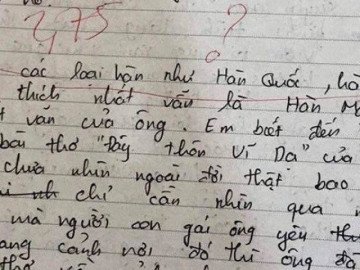 2,75 ?
các loại hàn như Hàn Quốc, ho
thích nhất vẫn là Hàn M
t văn của ông. Em biết đến
bài thơ "Đây thôn Vĩ Dạ" của
chưa nhìn ngoài đời thật bao
chỉ cần nhìn qua
mà người con gái ông yêu
ang cảnh nơi đó thì ông đã